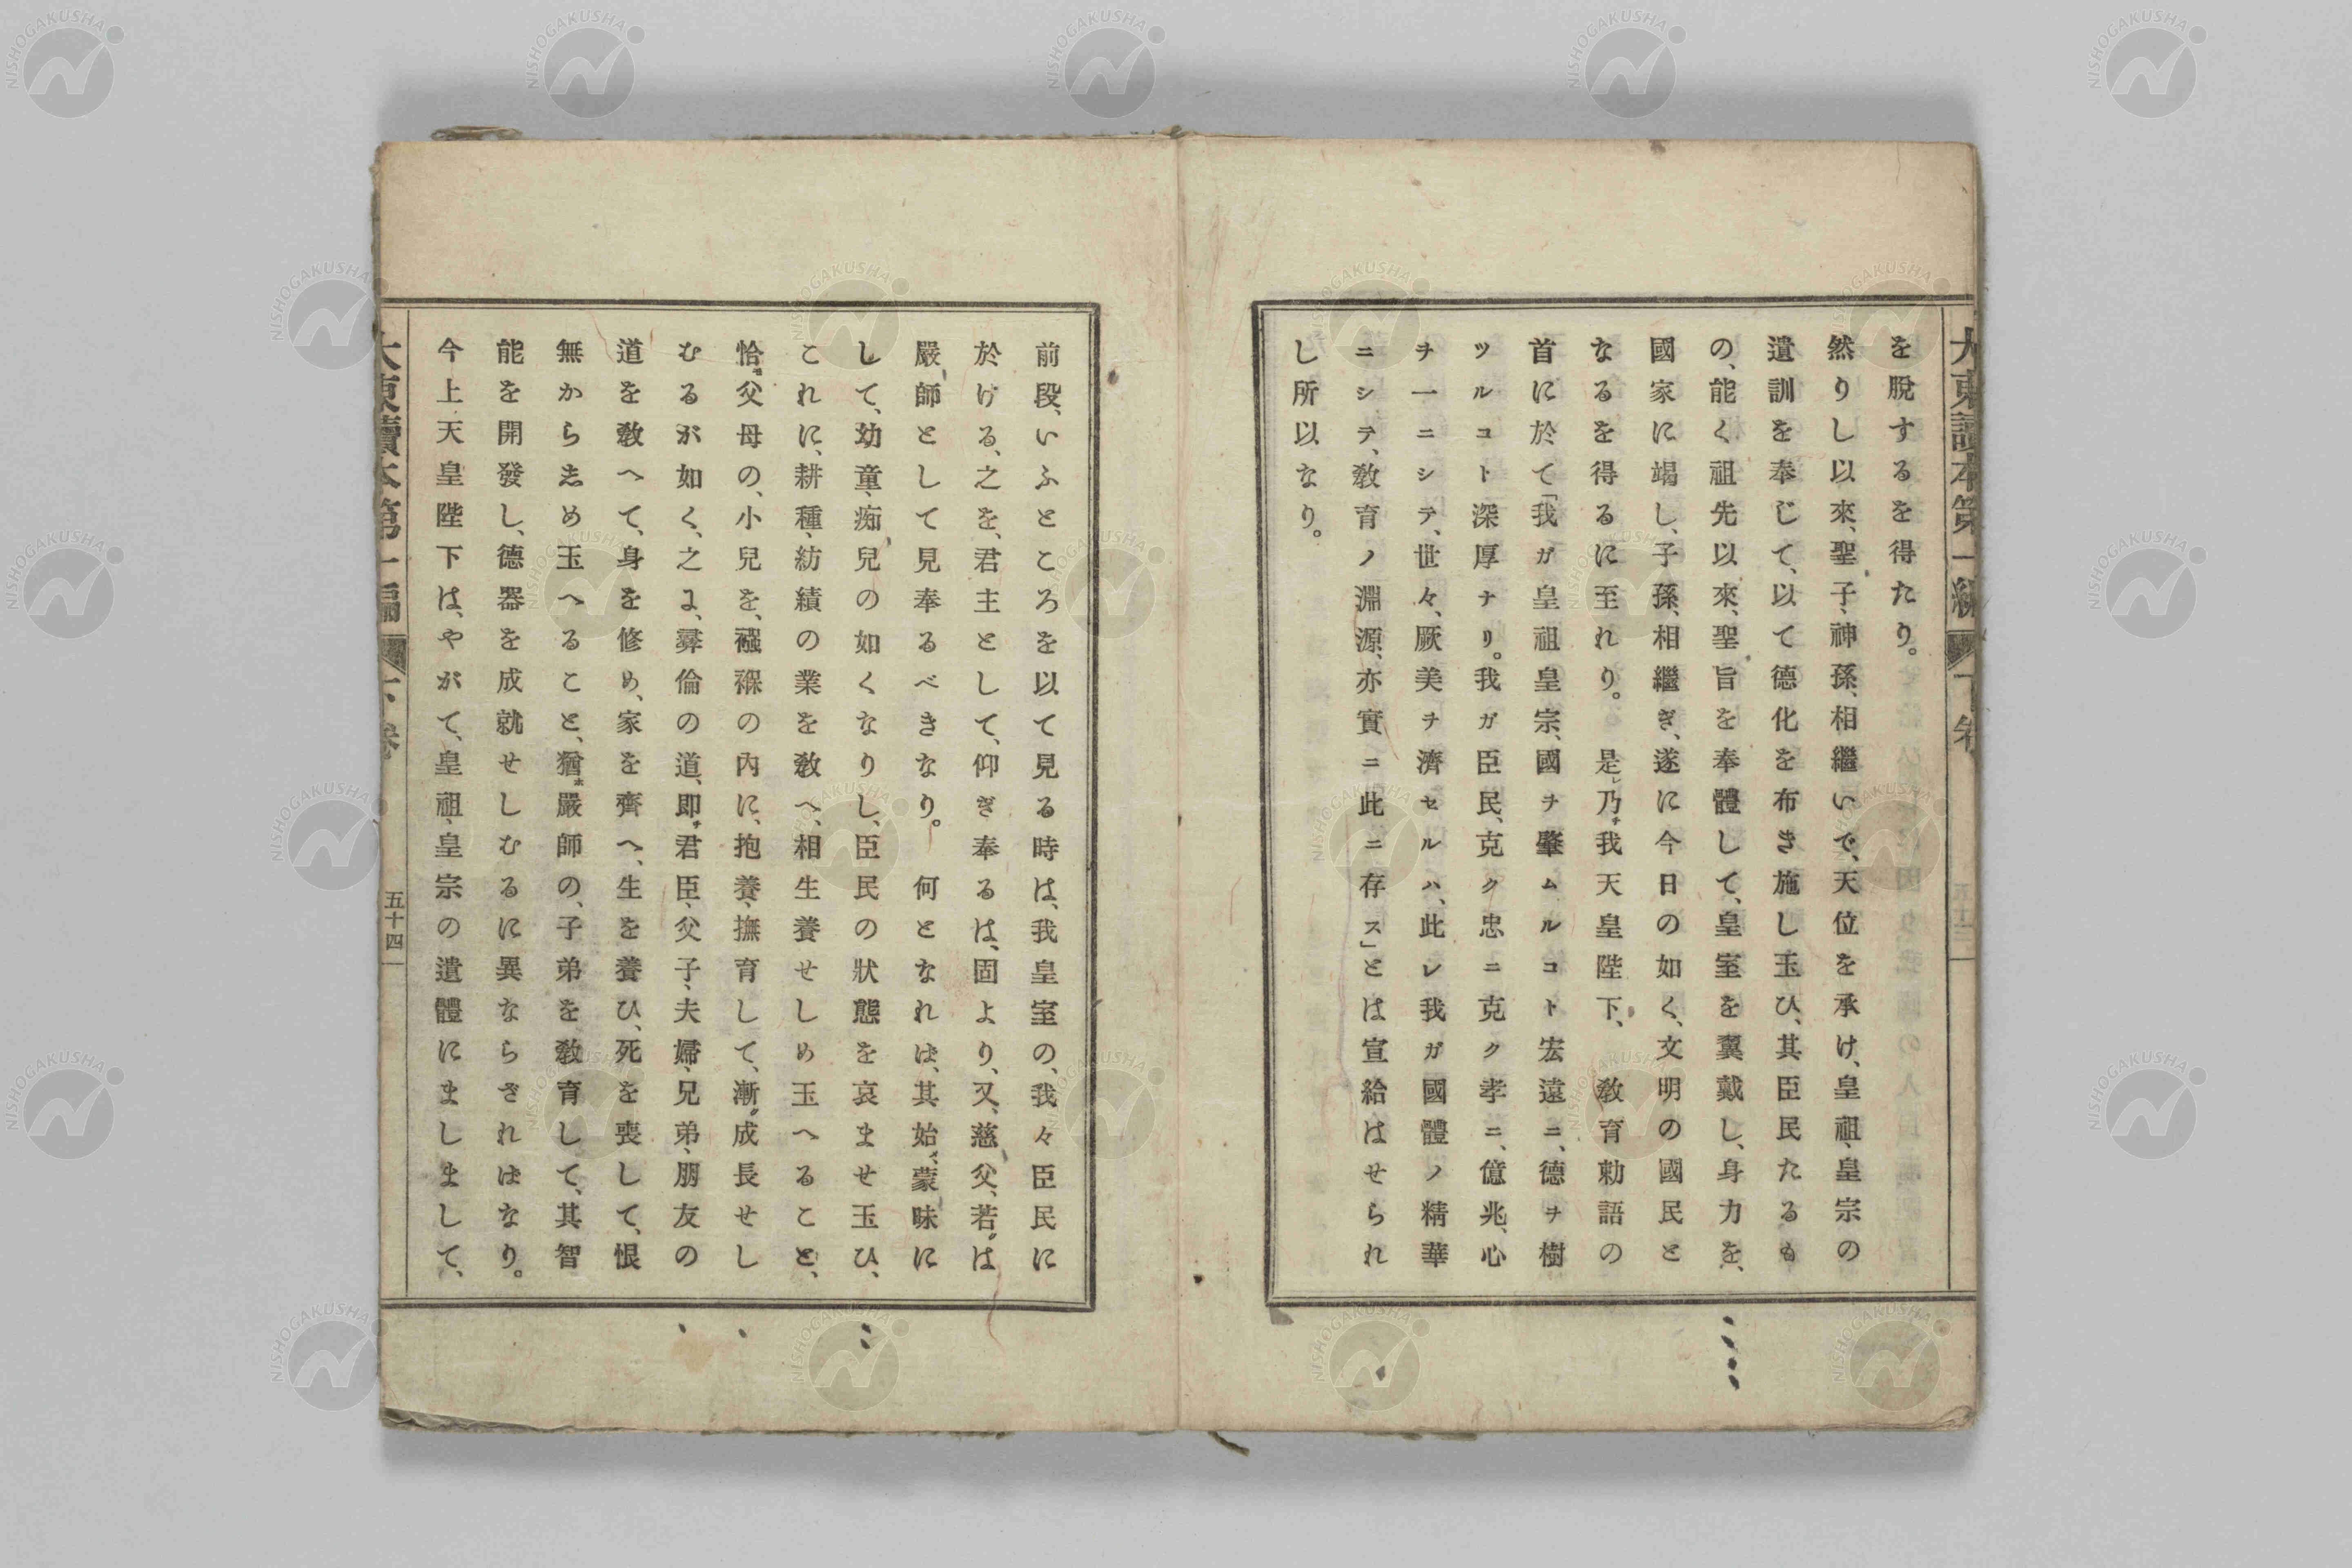 を脱するを得たり。
然りし以來、聖子、神孫、相繼いで、天位を承け、皇祖、皇宗の
遺訓を奉じて、以て德化を布き施し玉ひ、其臣民たるも
の、能く祖先以來、聖旨を奉體して、皇室を翼戴し、身力を、
國家に竭し、子孫、相繼ぎ、遂に今日の如く、文明の國民と
なるを得るに至れり。　是レ乃チ我天皇陛下、　教育勅語の
首に於て「我ガ皇祖皇宗、國ヲ肇ムルコト宏遠ニ、德ヲ樹
ツルコト深厚ナリ。我ガ臣民、克ク忠ニ克ク孝ニ、億兆、心
ヲ一ニシテ、世々、厥美ヲ濟セルハ、此レ我ガ國體ノ精華
ニシテ、教育ノ淵源、亦實ニ此ニ存ス」とは宣給はせられ
し所以なり。
大東讀本第一編　下卷
前段、いふところを以て見る時は、我皇室の、我々臣民に
於ける、之を、君主として、仰ぎ奉るは、固より、又、慈父、若クは
嚴師として見奉るべきなり。　何となれは、其始、蒙昧に
して、幼童、痴兒の如くなりし、臣民の狀態を哀ませ玉ひ、
これに、耕種、紡績の業を教へ、相生養せしめ玉へること、
恰モ父母の、小兒を、襁褓の內に、抱養、撫育して、漸ク成長せし
むるが如く、之よ、彝倫の道、即チ君臣、父子、夫婦、兄弟、朋友の
道を教へて、身を修め、家を齊へ、生を養ひ、死を喪して、恨
無からしめ玉へること、猶ホ嚴師の、子弟を教育して、其智
能を開發し、德器を成就せしむるに異ならされはなり。
今上天皇陛下は、やがて、皇祖、皇宗の遺體にましまして、
大東讀本第一編　下卷　五十四
NISHOGAKUSHA